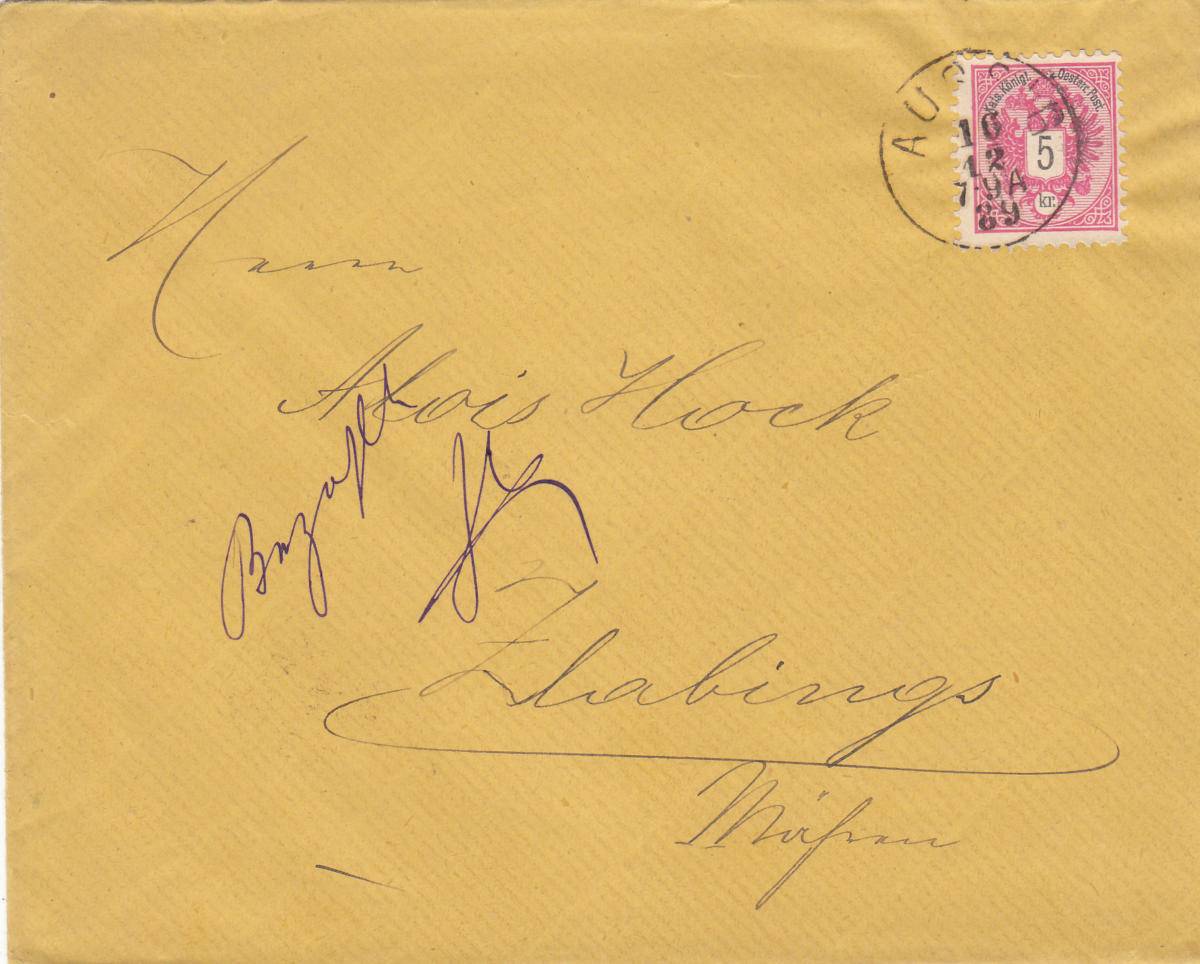 Kais. Königl. Oesterr. Post.
5
kr.
16
12
7-9A
89
Herrn
Alois Hock
Bezahlt
Zlabings
Mähren